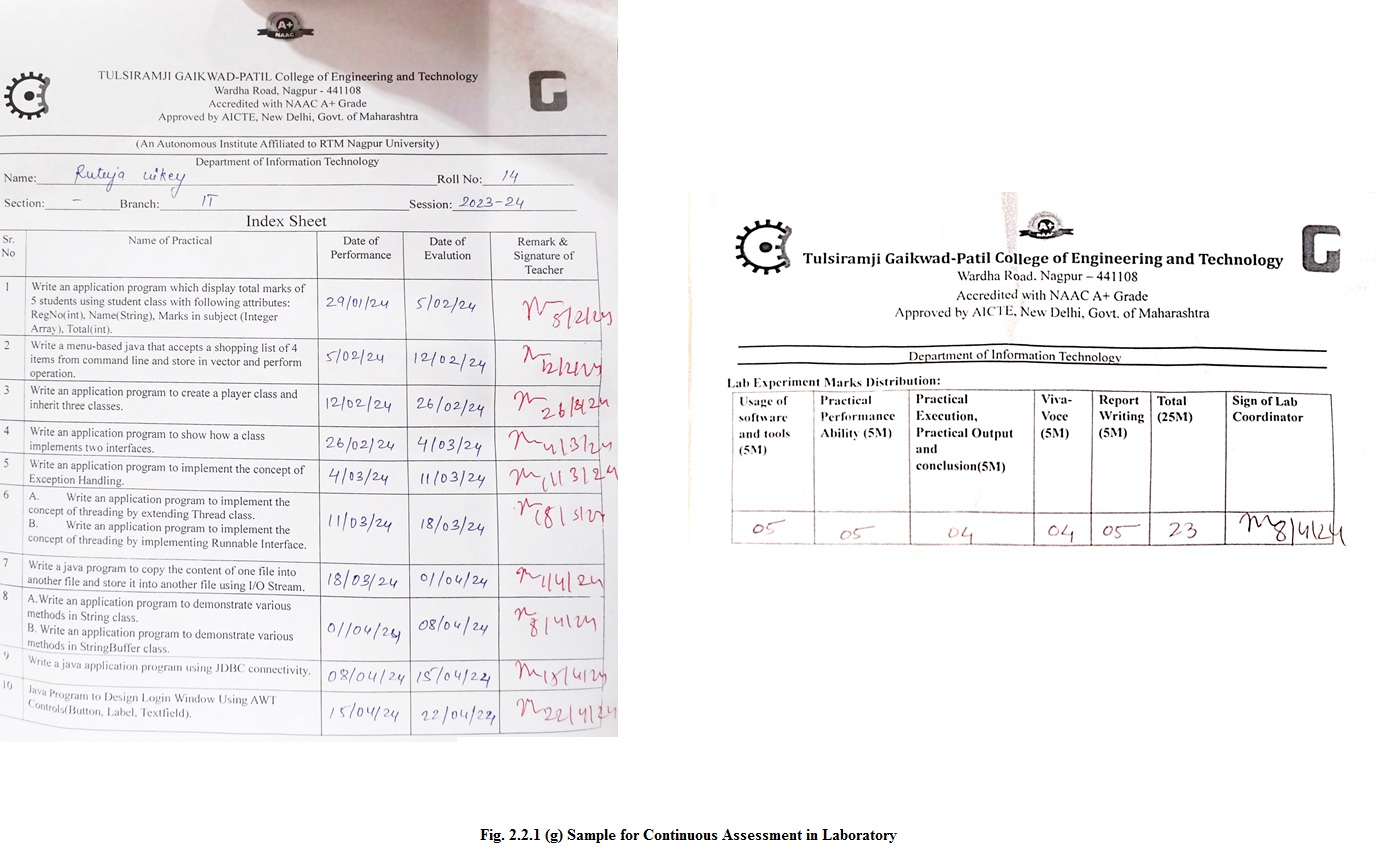 A+
NAAC
TULSIRAMJI GAIKWAD-PATIL College of Engineering and Technology
Wardha Road, Nagpur - 441108
Accredited with NAAC A+ Grade
Approved by AICTE, New Delhi, Govt. of Maharashtra
(An Autonomous Institute Affiliated to RTM Nagpur University)
Department of Information Technology
Name: Ruteja uikey Roll No: 14
Section: - Branch: IT Session: 2023-24
Index Sheet
Sr. No Name of Practical Date of Performance Date of Evalution Remark & Signature of Teacher
1 Write an application program which display total marks of
5 students using student class with following attributes:
RegNo(int), Name(String), Marks in subject (Integer
Array), Total(int).
29/01/24 5/02/24 5/2/24
2 Write a menu-based java that accepts a shopping list of 4
items from command line and store in vector and perform
operation.
5/02/24 12/02/24 12/2/24
3 Write an application program to create a player class and
inherit three classes.
12/02/24 26/02/24 26/2/24
4 Write an application program to show how a class
implements two interfaces.
26/02/24 4/03/24 4/3/24
5 Write an application program to implement the concept of
Exception Handling.
4/03/24 11/03/24 11/3/24
6 A. Write an application program to implement the
concept of threading by extending Thread class.
B. Write an application program to implement the
concept of threading by implementing Runnable Interface.
11/03/24 18/03/24 18/3/24
7 Write a java program to copy the content of one file into
another file and store it into another file using I/O Stream.
18/03/24 01/04/24 1/4/24
8 A.Write an application program to demonstrate various
methods in String class.
B. Write an application program to demonstrate various
methods in StringBuffer class.
01/04/24 08/04/24 8/4/24
9 Write a java application program using JDBC connectivity.
08/04/24 15/04/24 15/4/24
10 Java Program to Design Login Window Using AWT
Controls(Button, Label, Textfield).
15/04/24 22/04/24 22/4/24
Tulsiramji Gaikwad-Patil College of Engineering and Technology
Wardha Road. Nagpur – 441108
Accredited with NAAC A+ Grade
Approved by AICTE, New Delhi, Govt. of Maharashtra
Department of Information Technology
Lab Experiment Marks Distribution:
Usage of software and tools (5M) Practical Performance Ability (5M) Practical Execution, Practical Output and conclusion(5M) Viva-Voce (5M) Report Writing (5M) Total (25M) Sign of Lab Coordinator
05 05 04 04 05 23 8/4/24
Fig. 2.2.1 (g) Sample for Continuous Assessment in Laboratory